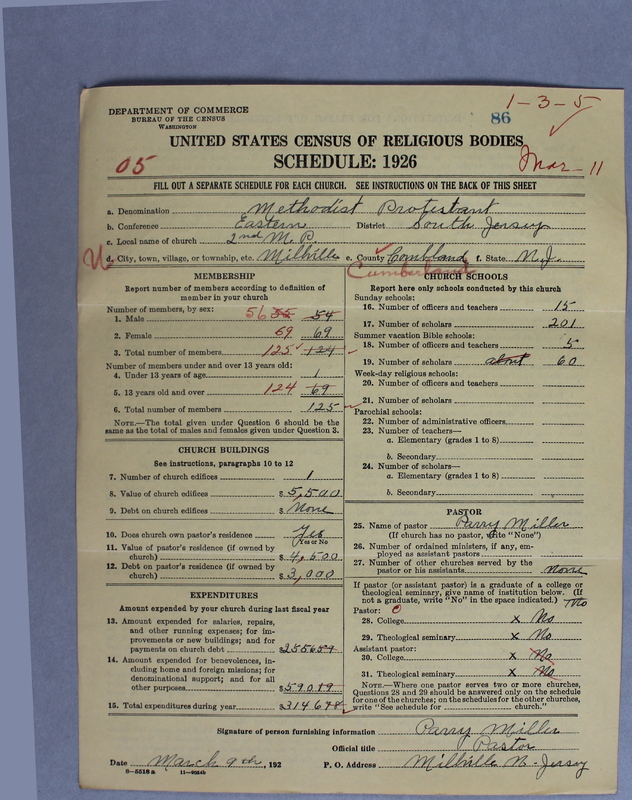 1-3-5
86
DEPARTMENT OF COMMERCE
BUREAU OF THE CENSUS
WASHINGTON
UNITED STATES CENSUS OF RELIGIOUS BODIES
05
SCHEDULE: 1926
Mar-11
FILL OUT A SEPARATE SCHEDULE FOR EACH CHURCH. SEE INSTRUCTIONS ON THE BACK OF THIS SHEET
a. Denomination Methodist Protestant
b. Conference Eastern District South Jersey
c. Local name of church 2nd M. P.
U d. City, town, village, or township, etc. Millville e. County Combland f. State N.J.
Cumberland
MEMBERSHIP
Report number of members according to definition of
member in your church
Number of members, by sex:
1. Male 56 55 54
2. Female 69 69
3. Total number of members 125 124
Number of members under and over 13 years old:
4. Under 13 years of age 1
5. 13 years old and over 124 69
6. Total number of members 125
NOTE.—The total given under Question 6 should be the
same as the total of males and females given under Question 3.
CHURCH BUILDINGS
See instructions, paragraphs 10 to 12
7. Number of church edifices 1
8. Value of church edifices $5,500
9. Debt on church edifices $ None
10. Does church own pastor's residence Yes
Yes or No
11. Value of pastor's residence (if owned by
church) $4,500
12. Debt on pastor's residence (if owned by
church) $3,000
EXPENDITURES
Amount expended by your church during last fiscal year
13. Amount expended for salaries, repairs,
and other running expenses; for im-
provements or new buildings; and for
payments on church debt $255659
14. Amount expended for benevolences, in-
cluding home and foreign missions; for
denominational support; and for all
other purposes $59019
15. Total expenditures during year $314678
CHURCH SCHOOLS
Report here only schools conducted by this church
Sunday schools:
16. Number of officers and teachers 15
17. Number of scholars 201
Summer vacation Bible schools:
18. Number of officers and teachers 5
19. Number of scholars about 60
Week-day religious schools:
20. Number of officers and teachers
21. Number of scholars
Parochial schools:
22. Number of administrative officers
23. Number of teachers—
a. Elementary (grades 1 to 8)
b. Secondary
24. Number of scholars—
a. Elementary (grades 1 to 8)
b. Secondary
PASTOR
25. Name of pastor Parry Miller
(If church has no pastor, write "None")
26. Number of ordained ministers, if any, em-
ployed as assistant pastors
27. Number of other churches served by the
pastor or his assistants none
If pastor (or assistant pastor) is a graduate of a college or
theological seminary, give name of institution below. (If
not a graduate, write "No" in the space indicated.) No
Pastor:
28. College x No
29. Theological seminary x No
Assistant pastor:
30. College x No
31. Theological seminary x No
NOTE.—Where one pastor serves two or more churches,
Questions 28 and 29 should be answered only on the schedule
for one of the churches; on the schedules for the other churches,
write "See schedule for church."
Signature of person furnishing information Parry Miller
Official title Pastor
Date March 9th, 192 P. O. Address Millville N. Jersey
8-5518 a 11-9054b